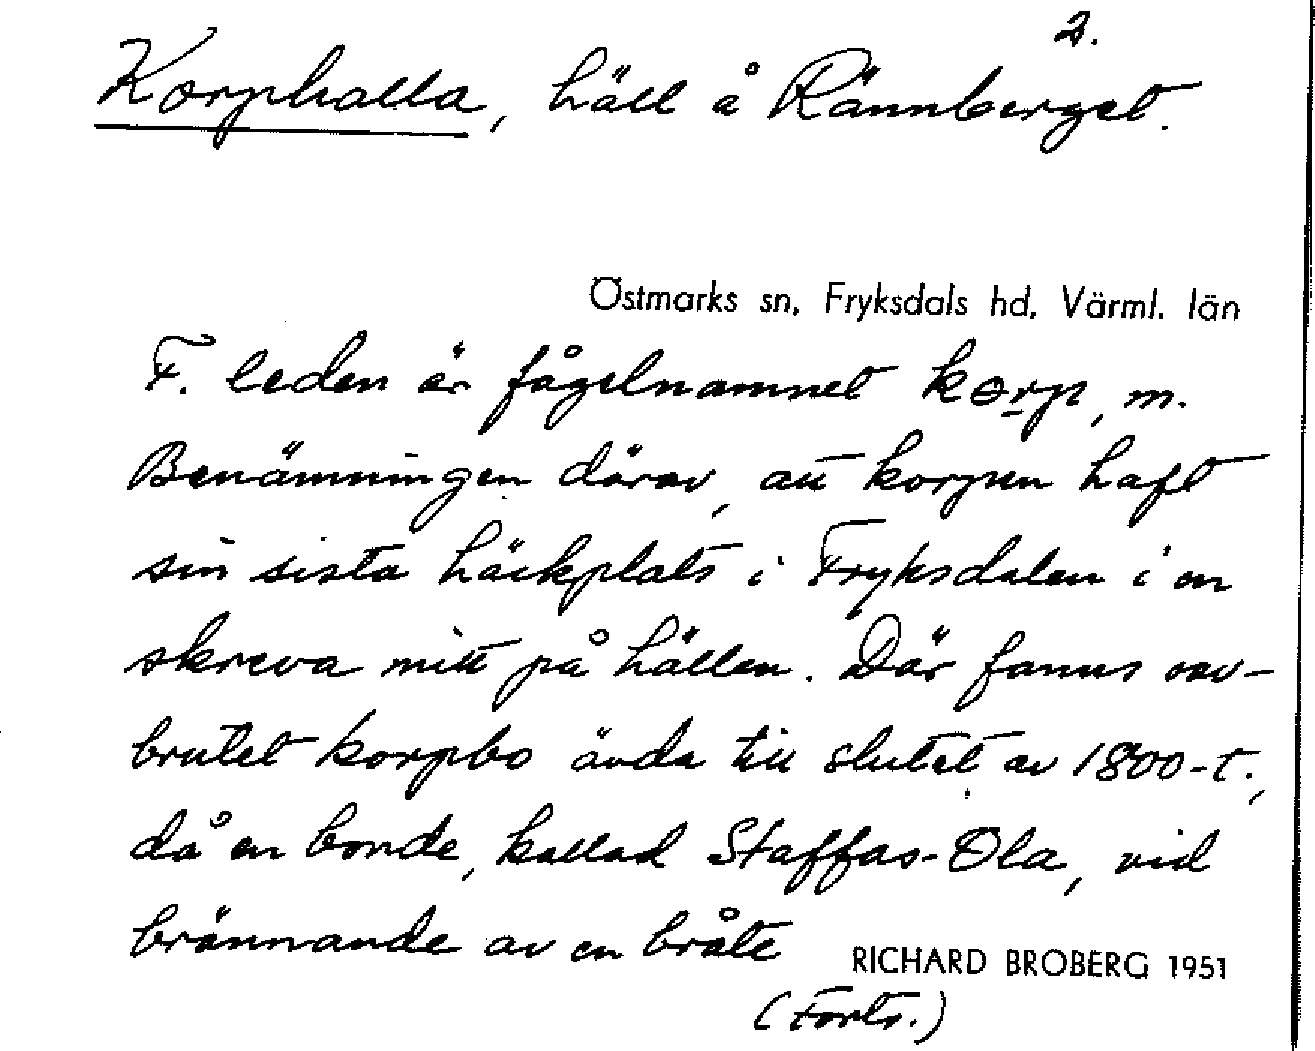 2.
Korphalla, häll å Rännberget.
Östmarks sn, Fryksdals hd, Värml. län
F. leden är fågelnamnet korp, m.
Benämningen därav, att korpen haft
sin sista häckplats i Fryksdalen i en
skreva mitt på hällen. Där fanns oav-
brutet korpbo ända till slutet av 1800-t.,
då en bonde, kallad Staffas-Ola, vid
brännande av en bråte
RICHARD BROBERG 1951
(Forts.)